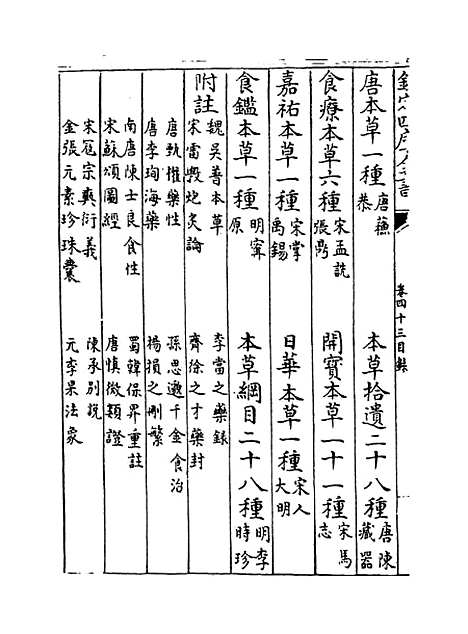 欽定四庫全書
卷四十三目錄
唐本草一種唐蘇恭　本草拾遺二十八種唐陳藏器
食療本草六種宋孟詵張鼎　開寶本草一十一種宋馬志
嘉祐本草一種宋掌禹錫　日華本草一種宋人大明
食鑑本草一種明甯原　本草綱目二十八種明李時珍
附註
魏吳普本草　李當之藥錄
宋雷斆炮炙論　齊徐之才藥封
唐甄權藥性　孫思邈千金食治
唐李珣海藥　楊損之刪繁
南唐陳士良食性　蜀韓保昇重註
宋蘇頌圖經　唐慎微類證
宋寇宗奭衍義　陳承別說
金張元素珍珠囊　元李杲法象